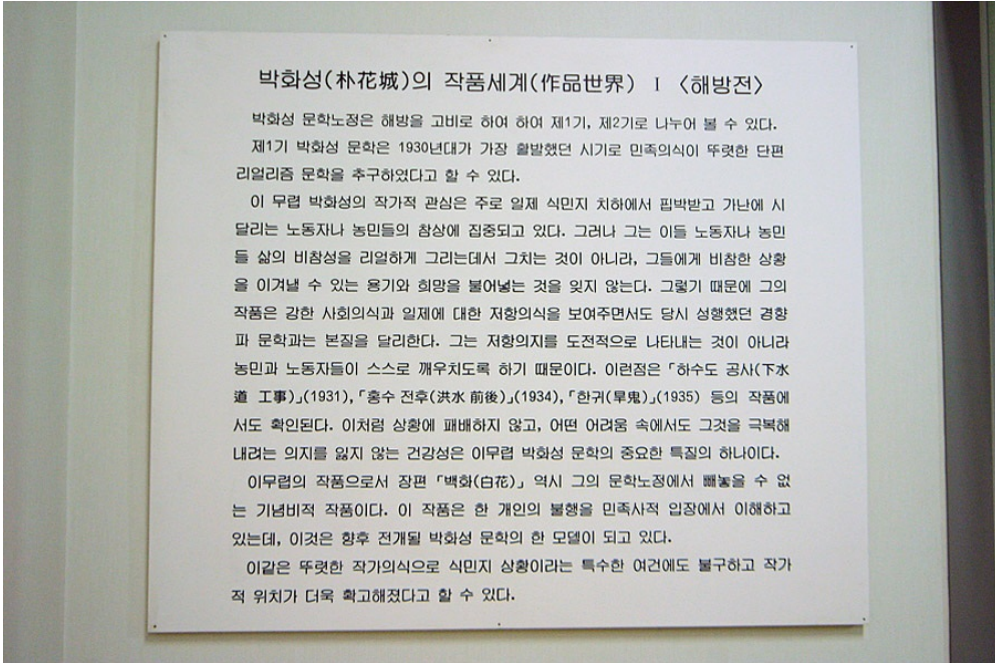 박화성(朴花城)의 작품세계(作品世界) Ⅰ 〈해방전〉
박화성 문학노정은 해방을 고비로 하여 하여 제1기, 제2기로 나누어 볼 수 있다.
제1기 박화성 문학은 1930년대가 가장 활발했던 시기로 민족의식이 뚜렷한 단편
리얼리즘 문학을 추구하였다고 할 수 있다.
이 무렵 박화성의 작가적 관심은 주로 일제 식민지 치하에서 핍박받고 가난에 시
달리는 노동자나 농민들의 참상에 집중되고 있다. 그러나 그는 이들 노동자나 농민
들 삶의 비참성을 리얼하게 그리는데서 그치는 것이 아니라, 그들에게 비참한 상황
을 이겨낼 수 있는 용기와 희망을 불어넣는 것을 잊지 않는다. 그렇기 때문에 그의
작품은 강한 사회의식과 일제에 대한 저항의식을 보여주면서도 당시 성행했던 경향
파 문학과는 본질을 달리한다. 그는 저항의지를 도전적으로 나타내는 것이 아니라
농민과 노동자들이 스스로 깨우치도록 하기 때문이다. 이런점은 「하수도 공사(下水
道 工事)」(1931), 「홍수 전후(洪水 前後)」(1934), 「한귀(旱鬼)」(1935) 등의 작품에
서도 확인된다. 이처럼 상황에 패배하지 않고, 어떤 어려움 속에서도 그것을 극복해
내려는 의지를 잃지 않는 건강성은 이무렵 박화성 문학의 중요한 특질의 하나이다.
이무렵의 작품으로서 장편 「백화(白花)」 역시 그의 문학노정에서 빼놓을 수 없
는 기념비적 작품이다. 이 작품은 한 개인의 불행을 민족사적 입장에서 이해하고
있는데, 이것은 향후 전개될 박화성 문학의 한 모델이 되고 있다.
이같은 뚜렷한 작가의식으로 식민지 상황이라는 특수한 여건에도 불구하고 작가
적 위치가 더욱 확고해졌다고 할 수 있다.